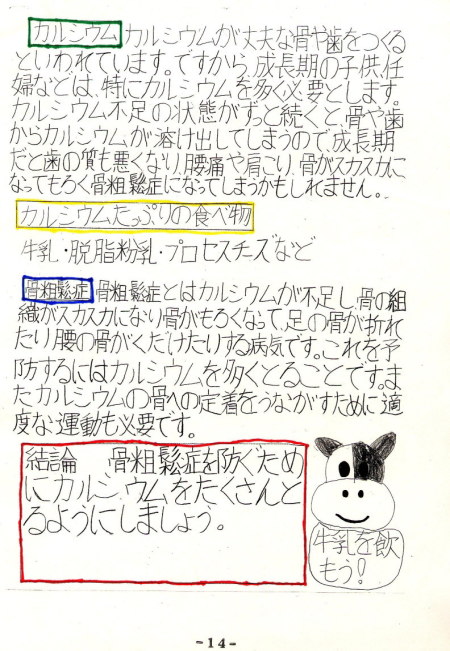 カルシウム カルシウムが丈夫な骨や歯をつくる
といわれています。ですから、成長期の子供、妊
婦などは、特にカルシウムを多く必要とします。
カルシウム不足の状態がずっと続くと、骨や歯
からカルシウムが溶け出してしまうので、成長期
だと歯の質も悪くなり、腰痛や肩こり、骨がスカスカに
なってもろく骨粗鬆症になってしまうかもしれません。
カルシウムたっぷりの食べ物
牛乳・脱脂粉乳・プロセスチーズなど
骨粗鬆症 骨粗鬆症とはカルシウムが不足し、骨の組
織がスカスカになり骨がもろくなって、足の骨が折れ
たり腰の骨がくだけたりする病気です。これを予
防するにはカルシウムを多くとることです。ま
たカルシウムの骨への定着をうながすために適
度な運動も必要です。
結論 骨粗鬆症を防ぐため
にカルシウムをたくさんと
るようにしましょう。
牛乳を飲
もう!
-14-